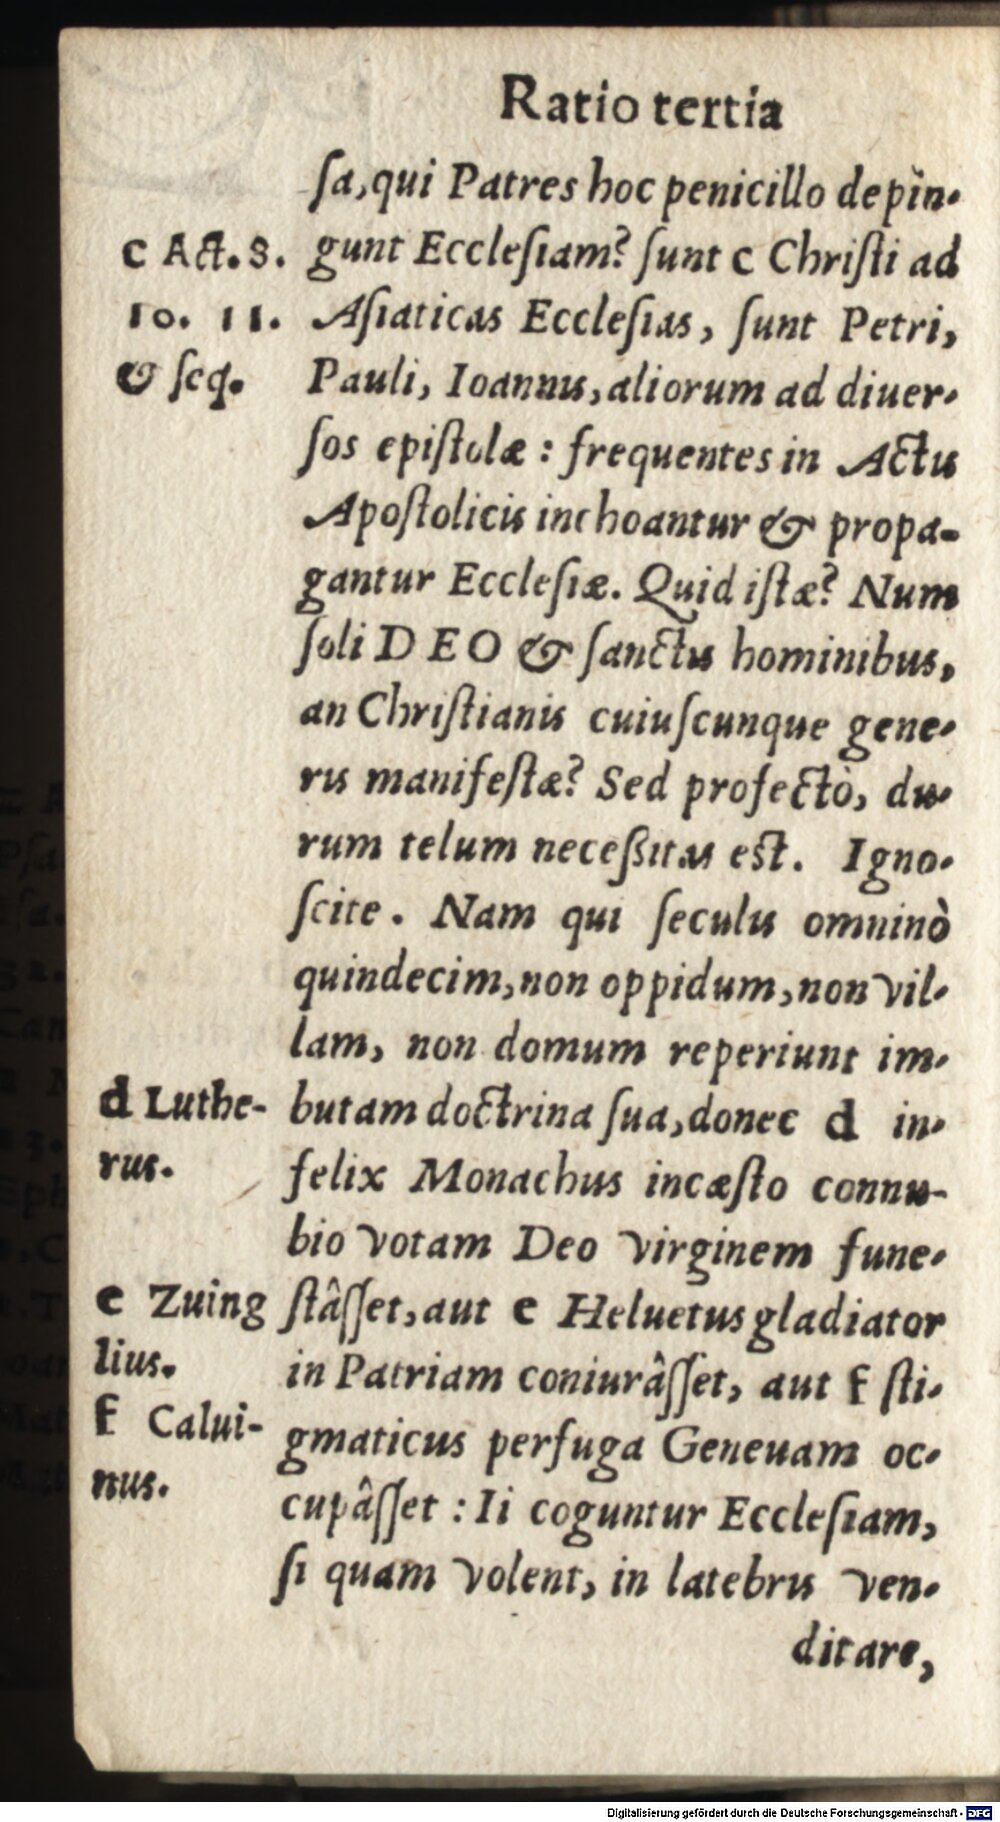 Ratio tertia
ſa, qui Patres hoc penicillo depin-
c Act. 8. gunt Eccleſiam? ſunt c Chriſti ad
10. 11. Aſiaticas Eccleſias, ſunt Petri,
& ſeq. Pauli, Ioannis, aliorum ad diuer-
ſos epiſtolæ: frequentes in Actis
Apoſtolicis inchoantur & propa-
gantur Eccleſiæ. Quid iſtæ? Num
ſoli DEO & ſanctis hominibus,
an Chriſtianis cuiuſcunque gene-
ris manifeſtæ? Sed profectò, du-
rum telum neceßitas eſt. Igno-
ſcite. Nam qui ſeculis omninò
quindecim, non oppidum, non vil-
lam, non domum reperiunt im-
d Luthe- butam doctrina ſua, donec d in-
rus. felix Monachus incæſto connu-
bio votam Deo virginem fune-
e Zuing ſtâſſet, aut e Heluetus gladiator
lius. in Patriam coniurâſſet, aut f ſti-
f Calui- gmaticus perfuga Geneuam oc-
nus. cupâſſet: Ii coguntur Eccleſiam,
ſi quam volent, in latebris ven-
ditare,
Digitalisierung gefördert durch die Deutsche Forschungsgemeinschaft - DFG